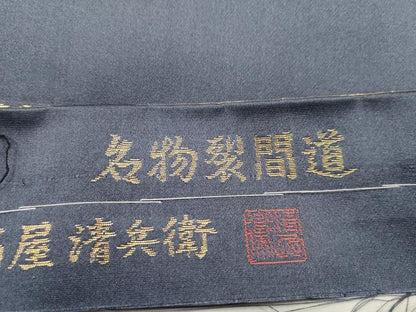 名物裂間道
屋清兵衛